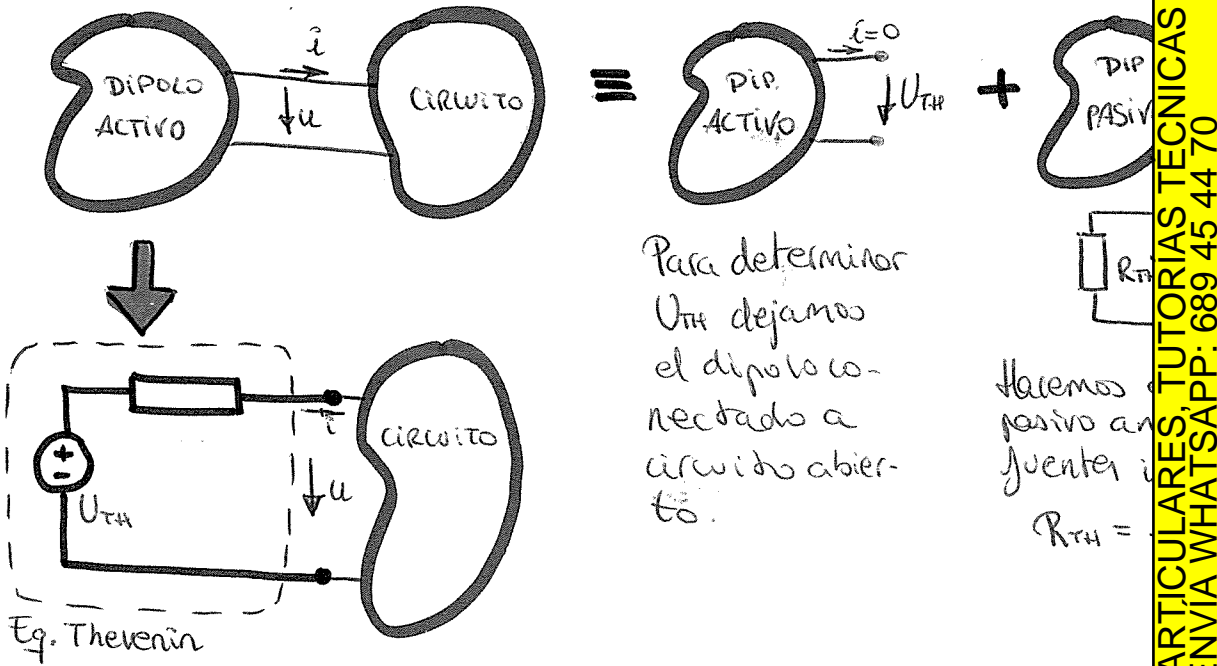 DIPOLO
ACTIVO
i
u
CIRCUITO
≡
DIP.
ACTIVO
i=0
UTH
+
DIP
PASIV
RTH
Para determinar
UTH dejamos
el dipolo co-
nectado a
circuito abier-
to.
Hacemos
pasivo an
fuentes i
RTH =
+
-
UTH
i
u
CIRCUITO
Eq. Thevenin
ARTICULARES, TUTORIAS TECNICAS
ENVÍA WHATSAPP: 689 45 44 70